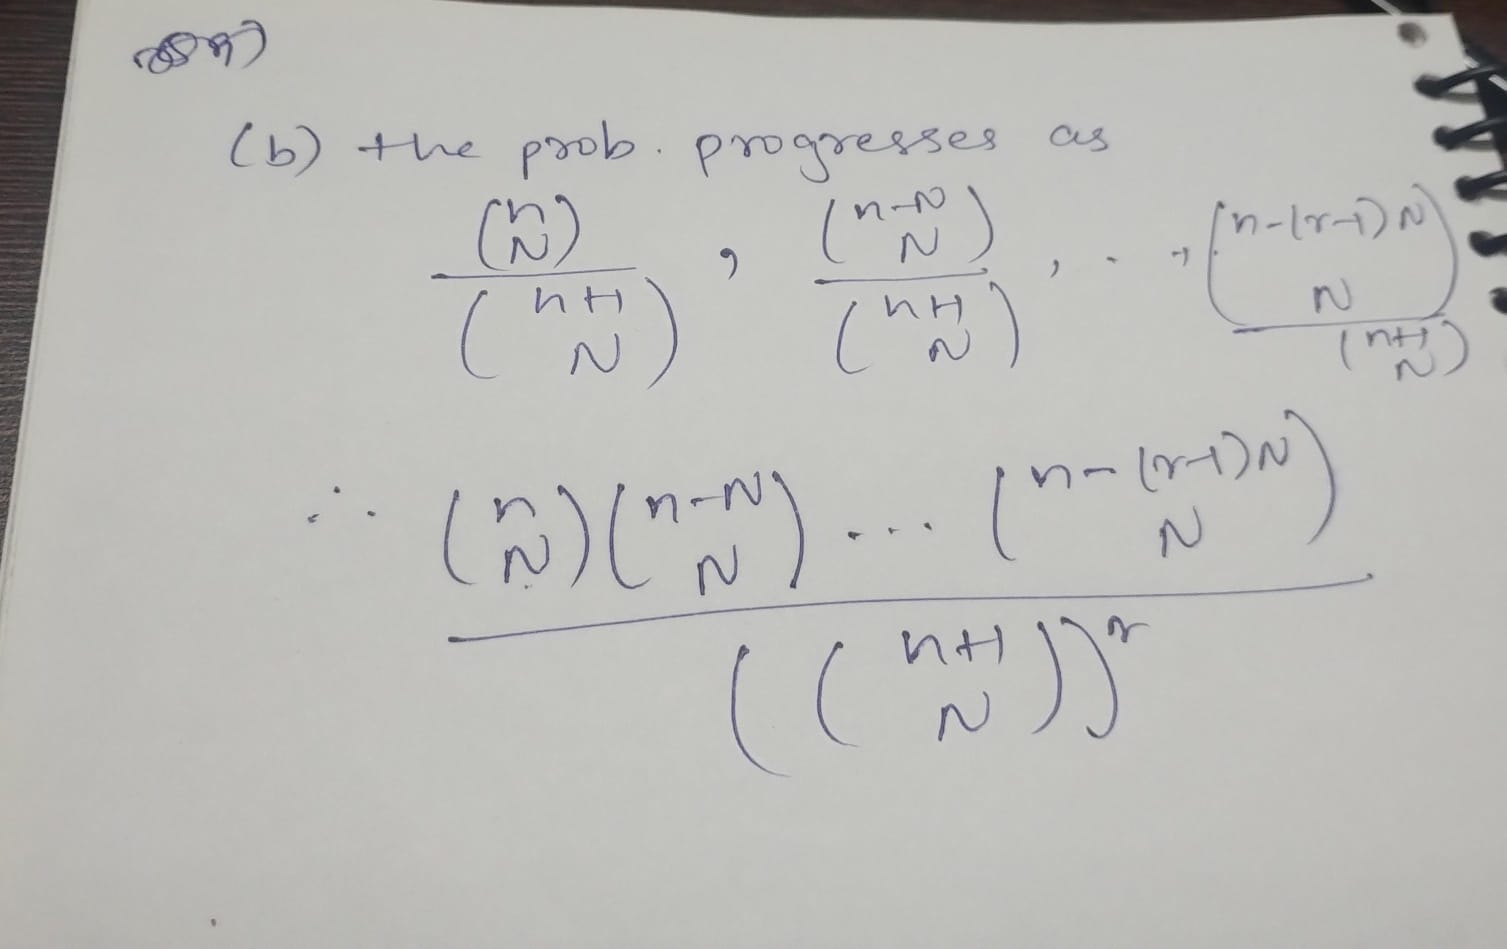 (b) the prob. progresses as
\frac{\binom{n}{N}}{\binom{n+1}{N}}, \frac{\binom{n-N}{N}}{\binom{n+1}{N}}, ..., \frac{\binom{n-(r-1)N}{N}}{\binom{n+1}{N}}
∴ \frac{\binom{n}{N}\binom{n-N}{N}...\binom{n-(r-1)N}{N}}{\left(\binom{n+1}{N}\right)^r}